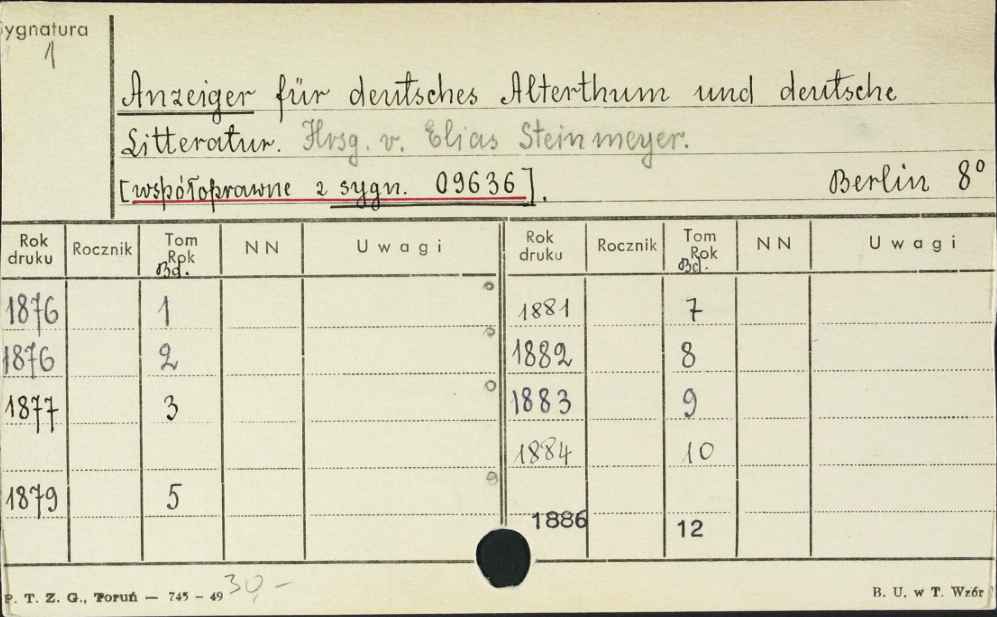 Sygnatura
1
Anzeiger für deutsches Alterthum und deutsche
Litteratur. Hrsg. v. Elias Steinmeyer.
[współoprawne z sygn. 09636]. Berlin 8°
Rok druku Rocznik Tom Rok Bd. NN Uwagi Rok druku Rocznik Tom Rok Bd. NN Uwagi
1876 1 1881 7
1876 2 1882 8
1877 3 1883 9
1884 10
1879 5
1886 12
P. T. Z. G., Toruń — 745 – 49 30,- B. U. w T. Wzór